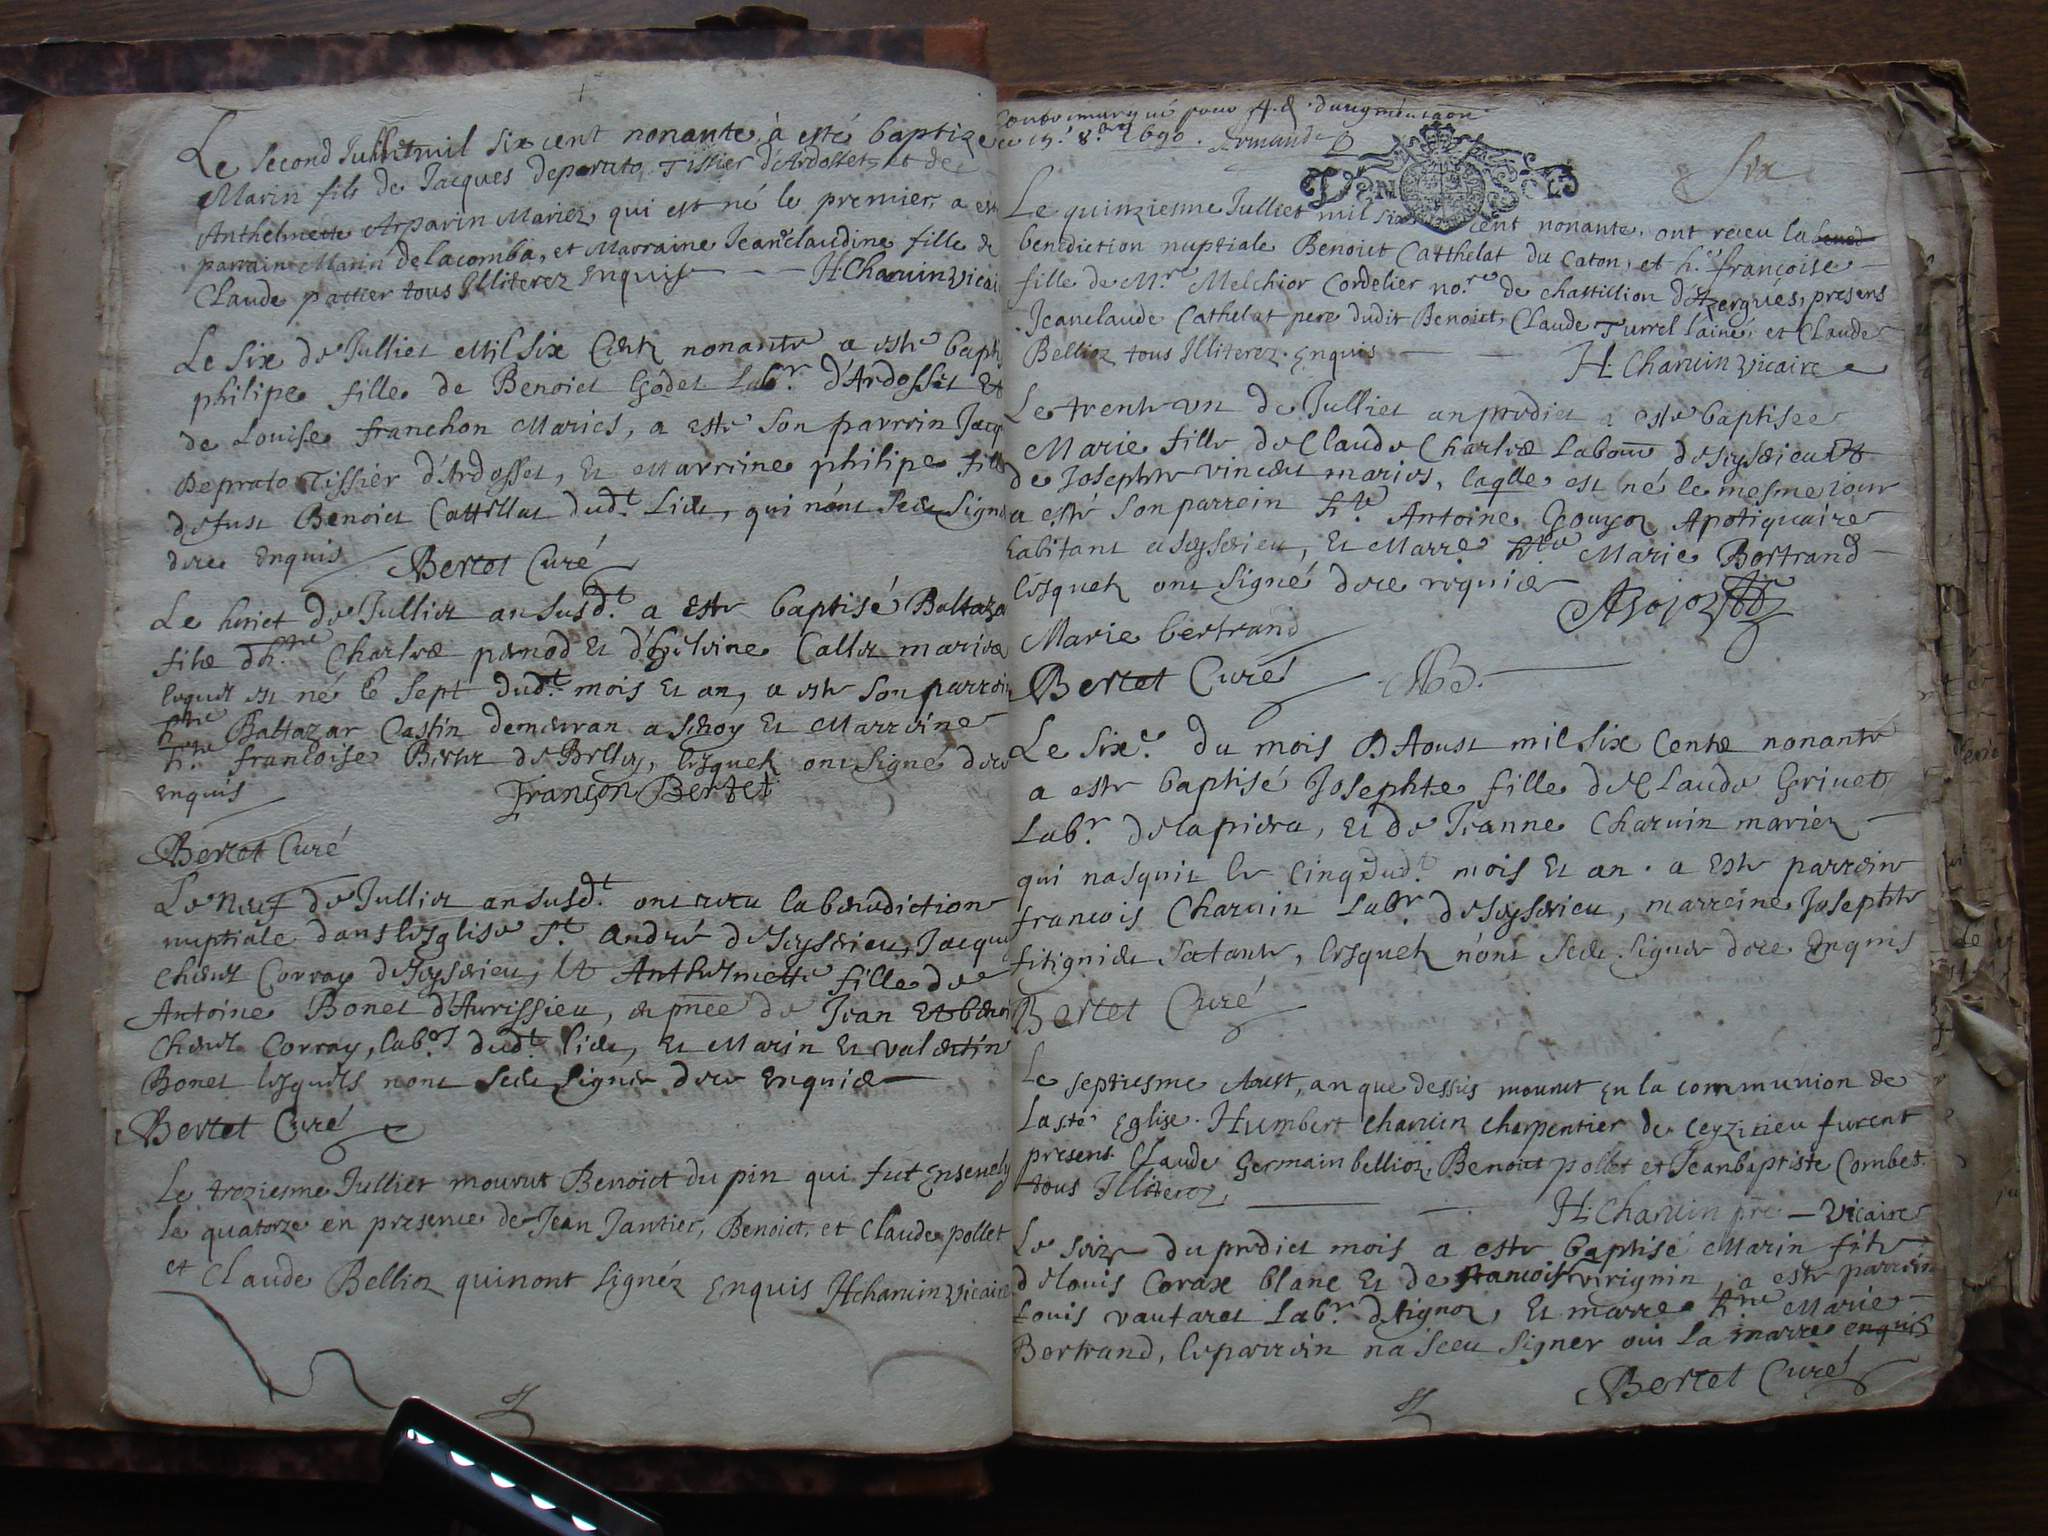 Le second Julliet mil six cent nonante à esté baptizé
Marin fils de Jacques deprato Tissier d'Ardosset et de
Anthelmette Arparin Mariez qui est né le premier, a esté
parrain Marin delacomba, et Marraine Jeane claudine fille de
Claude pattier tous Illiterez Enquis H: Charuin vicai
Le six de Julliet Mil six Cent nonante a este bapt
philipe fille de Benoict Godet Labr. d'Ardosset Et
de Louise franchon Mariés, a este son parrein Jacq
Deprato Tissier d'Ardosset, Et Marreine philipe fille
defust Benoict Cattillat dudt. Lieu, qui n'ont sceu signe
dece Enquis Bertet Curé
Le huict de Julliet an susdt. a este baptisé Baltaza
Charles pernod Et Mariés
lequel est né le sept dudt. mois Et an, a este son parrein
Baltazar Cassin demeuran a Et Marreine
francoise de Belley, lesquels ont signé dece
enquis Françon Bertet
Bertet Curé
Le neuf de Julliet an susdt. ont receu la benediction
nuptiale dans lesglise St. André de Ceyserieu, Jacque
Corray de Ceyserieu, Et Anthelmette fille de
Antoine Bonet d'Avrissieu, en pñce de Jean Et benoi
Corray, labrs dudt. lieu, Et Marin Et valentin
Bonet lesquels nont sceu signer dece Enquis
Bertet Curé
Le treziesme Julliet mourut Benoict du pin qui fut Enseuely
le quatorze en presence de Jean Jantier, Benoict, et Claude pollet
et Claude Bellioz quinont signéz Enquis H charuin vicaire
Contremarqué pour d'augmentaon
ce 1690. Armand
Six
Le quinziesme Julliet mil six cent nonante, ont receu la bened
benediction nuptiale Benoict Catthelat du Caton, et h.e françoise
fille de Mr. Melchior Cordelier nore. de chastillion d'Azergues, presens
Jeanclaude Cathelat pere dudit Benoict, Claude Turrel lainé, et Claude
Bellioz tous Illiterez. Enquis H: Charuin vicaire
Le trente un de Julliet an predict a este baptisee
Marie fille de Claude Charles Labour de Ceyserieu Et
de Josephte vincent mariés, laqlle est né le mesme jour
a esté son parrein Antoine Goujoz Apotiquaire
habitant a Ceyserieu, Et Marre Marie Bertrand
lesquels ont signé dece requis
Marie bertrand
Bertet Curé
Le sixe. du mois D'Aoust mil six Cents nonante
a este baptisé Josephte fille de Claude Grivet
Labr. delapierra, Et de Jeanne Charuin mariez
qui nasquit le cinq dudt. mois Et an. a este parrein
francois Charuin Labr. de Ceyserieu, marreine Josephte
lesquels n'ont sceu signer dece Enquis
Bertet Curé
Le septiesme Aust, an que dessus mourut En la communion de
La ste Eglise. Humbert charuin charpentier de Ceyzirieu furent
presens Claude Germain bellioz, Benoict pollet et Jeanbaptiste Combet
tous Illiterez.
H: Charuin pre – vicaire
Le seize du predict mois a este baptisé Marin fils
de louis Corax blanc Et de francoise virignin, a este parrein
Louis vautaret Labr. Et marre hne Marie
Bertrand, le parrein na sceu signer oui la marre enquis
Bertet Curé